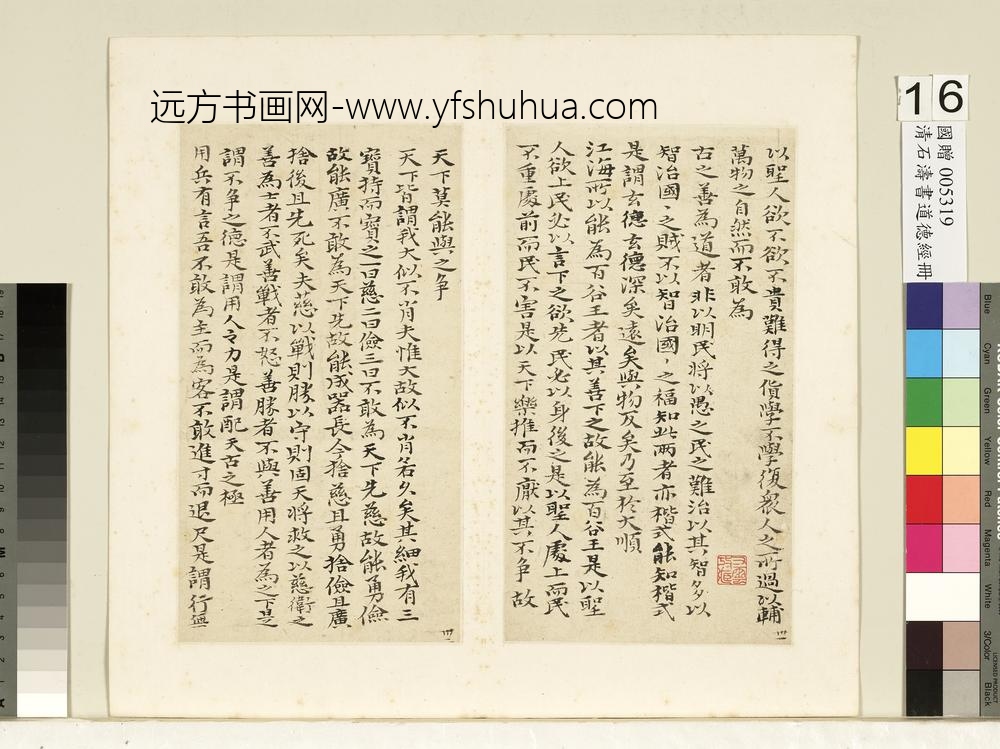 远方书画网-www.yfshuhua.com
16
國贈 005319
清石濤書道德經冊
以聖人欲不欲不貴難得之貨學不學復衆人之所過以輔
萬物之自然而不敢為
古之善為道者非以明民將以愚之民之難治以其智多以
智治國之賊不以智治國之福知此兩者亦楷式能知楷式
是謂玄德玄德深矣遠矣與物反矣乃至於大順
江海所以能為百谷王者以其善下之故能為百谷王是以聖
人欲上民必以言下之欲先民必以身後之是以聖人處上而民
不重處前而民不害是以天下樂推而不厭以其不爭故
天下莫能與之争
天下皆謂我大似不肖夫惟大故似不肖若久矣其細我有三
寶持而寶之一曰慈二曰儉三曰不敢為天下先慈故能勇儉
故能廣不敢為天下先故能成器長今捨慈且勇捨儉且廣
捨後且先死矣夫慈以戰則勝以守則固天將救之以慈衛之
善為士者不武善戰者不怒善勝者不與善用人者為之下是
謂不争之德是謂用人之力是謂配天古之極
用兵有言吾不敢為主而為客不敢進寸而退尺是謂行無
Blue
Cyan
Green
Yellow
Red
Magenta
White
3/Color
Black